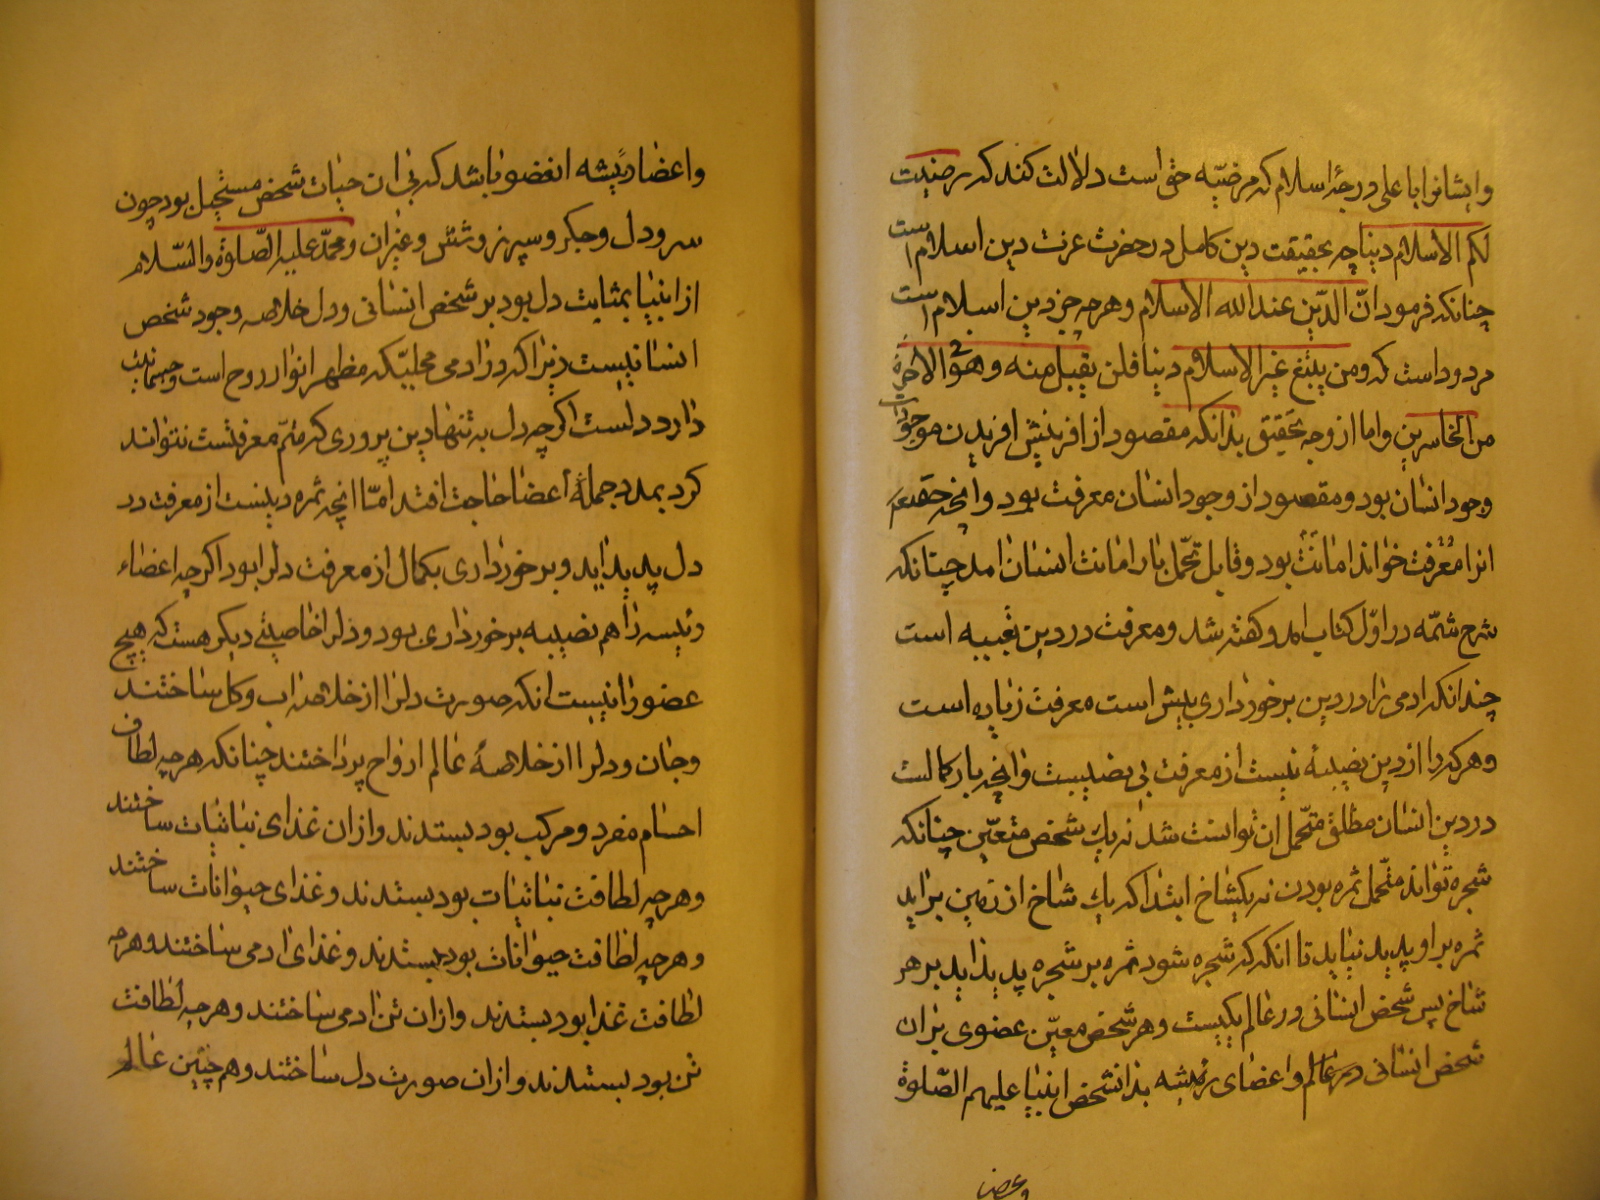 وایشانرا باعلی درجهٔ اسلام که مرضیّه حق است دلالت کند که رضیت
لکم الاسلام دینا چه بحقیقت دین کامل در حضرت عزت دین اسلام است
چنانکه فرمود انّ الدّین عند الله الاسلام وهرچه جز دین اسلام است
مردود است که ومن یبتغ غیر الاسلام دینا فلن یقبل منه وهو فی الاخرة
من الخاسرین واما از وجه تحقیق بدانکه مقصود از افرینش افریدن موجودات
وجود انسان بود ومقصود از وجود انسان معرفت بود وانچه حقتعم
انرا امانت خواند معرفت بود وقابل تحمّل بار امانت انسان امد چنانکه
شرح شمّه در اوّل کتاب امد وگفته شد ومعرفت در دین تعبیه است
چندانکه ادمی را در دین برخورداری بیش است معرفت زیاده است
وهرکرا از دین نصیبهٔ نیست از معرفت بی نصیبست وانچه بار کمالست
در دین انسان مطلق متحمل ان توانست شد نه یک شخص متعیّن چنانکه
شجره تواند متحمل ثمره بودن نه یکشاخ ابتدا که یک شاخ از زمین براید
ثمره بر او پدید نیاید تا انکه که شجره شود ثمره بر شجره پدید اید بر هر
شاخ پس شخص انسانی در عالم یکیست وهر شخص معیّن عضوی بران
شخص انسانی در عالم واعضای رئیسه بدانشخص انبیا علیهم الصّلوة
واعضا
واعضا رئیسه انعضو باشد که بی ان حیات شخص مستحیل بود چون
سر ودل وجگر وسپرز وشش وغیران ومحمّد علیه الصّلوة والسّلام
از انبیا بمثابت دل بود بر شخص انسانی ودل خلاصه وجود شخص
انسانیست زیرا که در ادمی محلیّکه مظهر انوار روح است وجسمانیت
دارد دلست اگرچه دل به تنها دین پروری که مثمّر معرفتست نتواند
کرد بمدد جملهٔ اعضا حاجت افتد امّا انچه ثمره دینست از معرفت در
دل پدید اید وبرخورداری بکمال از معرفت دلرا بود اگرچه اعضاء
رئیسه را هم نصیبه برخورداری بود ودلرا خاصیتی دیگر هست که هیچ
عضو را نیست انکه صورت دلرا از خلاصه اب وگل ساختند
وجان ودلرا از خلاصهٔ عالم ارواح پرداختند چنانکه هرچه لطاف
اجسام مفرد ومرکب بود بستدند وازان غذای نباتیات ساختند
وهرچه لطافت نباتیات بود بستدند وغذای حیوانات ساختند
وهرچه لطافت حیوانات بود بستدند وغذای ادمی ساختند وهرچه
لطافت غذا بود بستدند وازان تن ادمی ساختند وهرچه لطافت
تن بود بستدند وازان صورت دل ساختند وهم چنین عالم